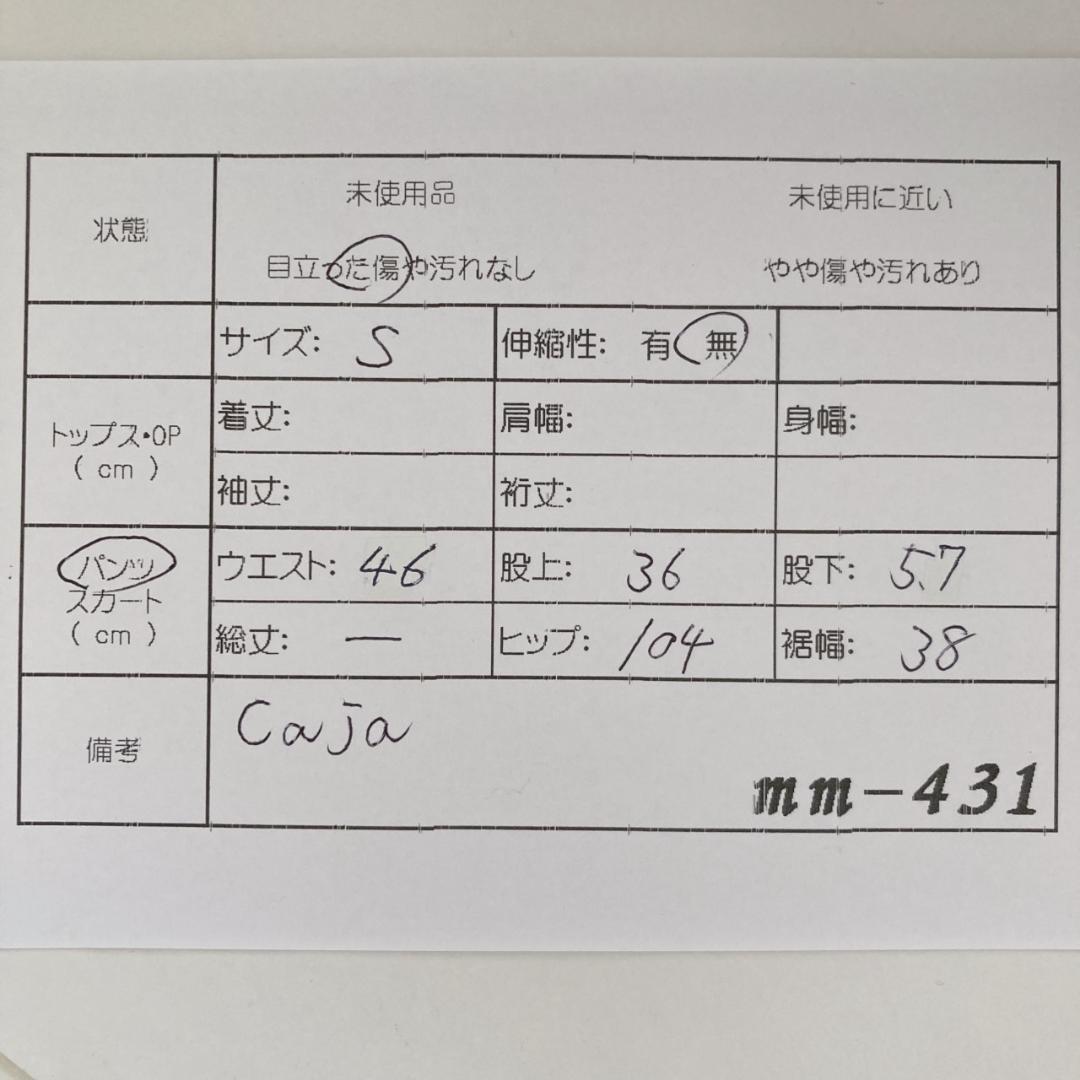 状態
未使用品 未使用に近い
目立った傷や汚れなし やや傷や汚れあり
サイズ: S 伸縮性: 有 無
トップス・OP
( cm )
着丈: 肩幅: 身幅:
袖丈: 裄丈:
パンツ
スカート
( cm )
ウエスト: 46 股上: 36 股下: 57
総丈: — ヒップ: 104 裾幅: 38
備考
Caja
mm-431